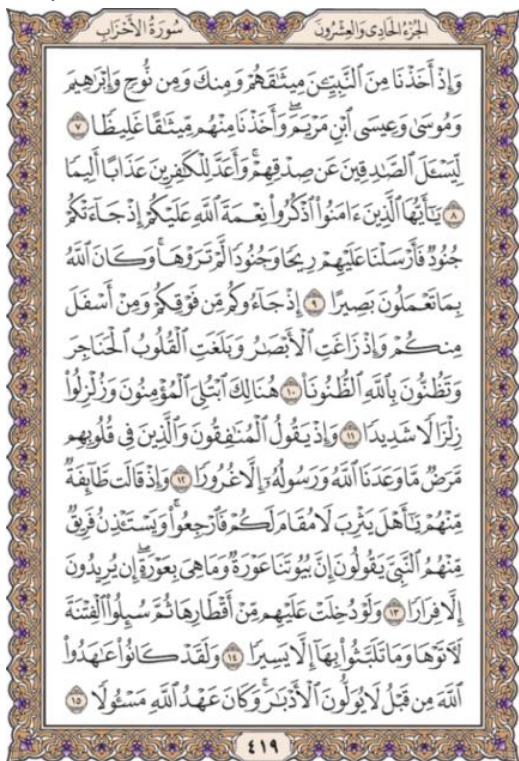 الجزء الحادى والعشرون سورة الأحزاب
وَإِذْ أَخَذْنَا مِنَ ٱلنَّبِيِّـۧنَ مِيثَٰقَهُمْ وَمِنكَ وَمِن نُّوحٍ وَإِبْرَٰهِيمَ
وَمُوسَىٰ وَعِيسَى ٱبْنِ مَرْيَمَۖ وَأَخَذْنَا مِنْهُم مِّيثَٰقًا غَلِيظًا ٧
لِّيَسْـَٔلَ ٱلصَّٰدِقِينَ عَن صِدْقِهِمْۚ وَأَعَدَّ لِلْكَٰفِرِينَ عَذَابًا أَلِيمًا
٨ يَٰٓأَيُّهَا ٱلَّذِينَ ءَامَنُوا۟ ٱذْكُرُوا۟ نِعْمَةَ ٱللَّهِ عَلَيْكُمْ إِذْ جَآءَتْكُمْ
جُنُودٌ فَأَرْسَلْنَا عَلَيْهِمْ رِيحًا وَجُنُودًا لَّمْ تَرَوْهَاۚ وَكَانَ ٱللَّهُ
بِمَا تَعْمَلُونَ بَصِيرًا ٩ إِذْ جَآءُوكُم مِّن فَوْقِكُمْ وَمِنْ أَسْفَلَ
مِنكُمْ وَإِذْ زَاغَتِ ٱلْأَبْصَٰرُ وَبَلَغَتِ ٱلْقُلُوبُ ٱلْحَنَاجِرَ
وَتَظُنُّونَ بِٱللَّهِ ٱلظُّنُونَا۠ ١٠ هُنَالِكَ ٱبْتُلِىَ ٱلْمُؤْمِنُونَ وَزُلْزِلُوا۟
زِلْزَالًا شَدِيدًا ١١ وَإِذْ يَقُولُ ٱلْمُنَٰفِقُونَ وَٱلَّذِينَ فِى قُلُوبِهِم
مَّرَضٌ مَّا وَعَدَنَا ٱللَّهُ وَرَسُولُهُۥٓ إِلَّا غُرُورًا ١٢ وَإِذْ قَالَت طَّآئِفَةٌ
مِّنْهُمْ يَٰٓأَهْلَ يَثْرِبَ لَا مُقَامَ لَكُمْ فَٱرْجِعُوا۟ۚ وَيَسْتَـْٔذِنُ فَرِيقٌ
مِّنْهُمُ ٱلنَّبِىَّ يَقُولُونَ إِنَّ بُيُوتَنَا عَوْرَةٌ وَمَا هِىَ بِعَوْرَةٍۖ إِن يُرِيدُونَ
إِلَّا فِرَارًا ١٣ وَلَوْ دُخِلَتْ عَلَيْهِم مِّنْ أَقْطَارِهَا ثُمَّ سُئِلُوا۟ ٱلْفِتْنَةَ
لَـَٔاتَوْهَا وَمَا تَلَبَّثُوا۟ بِهَآ إِلَّا يَسِيرًا ١٤ وَلَقَدْ كَانُوا۟ عَٰهَدُوا۟
ٱللَّهَ مِن قَبْلُ لَا يُوَلُّونَ ٱلْأَدْبَٰرَۚ وَكَانَ عَهْدُ ٱللَّهِ مَسْـُٔولًا ١٥
٤١٩